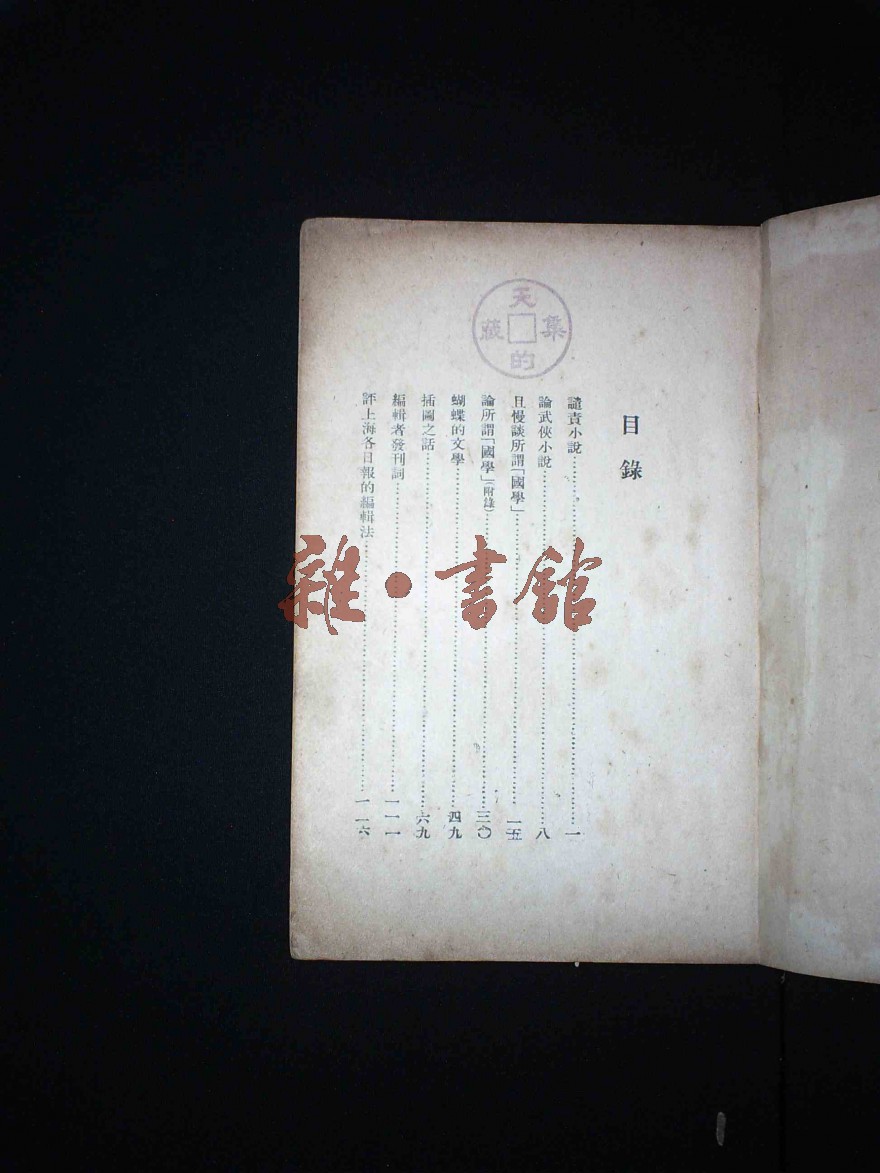 目錄
譴責小說……一
論武俠小說……八
且慢談所謂「國學」……一五
論所謂「國學」(附錄)……三〇
蝴蝶的文學……四九
插圖之話……六九
編輯者發刊詞……一一一
評上海各日報的編輯法……一一六
天
藏 集
的
雜·書館